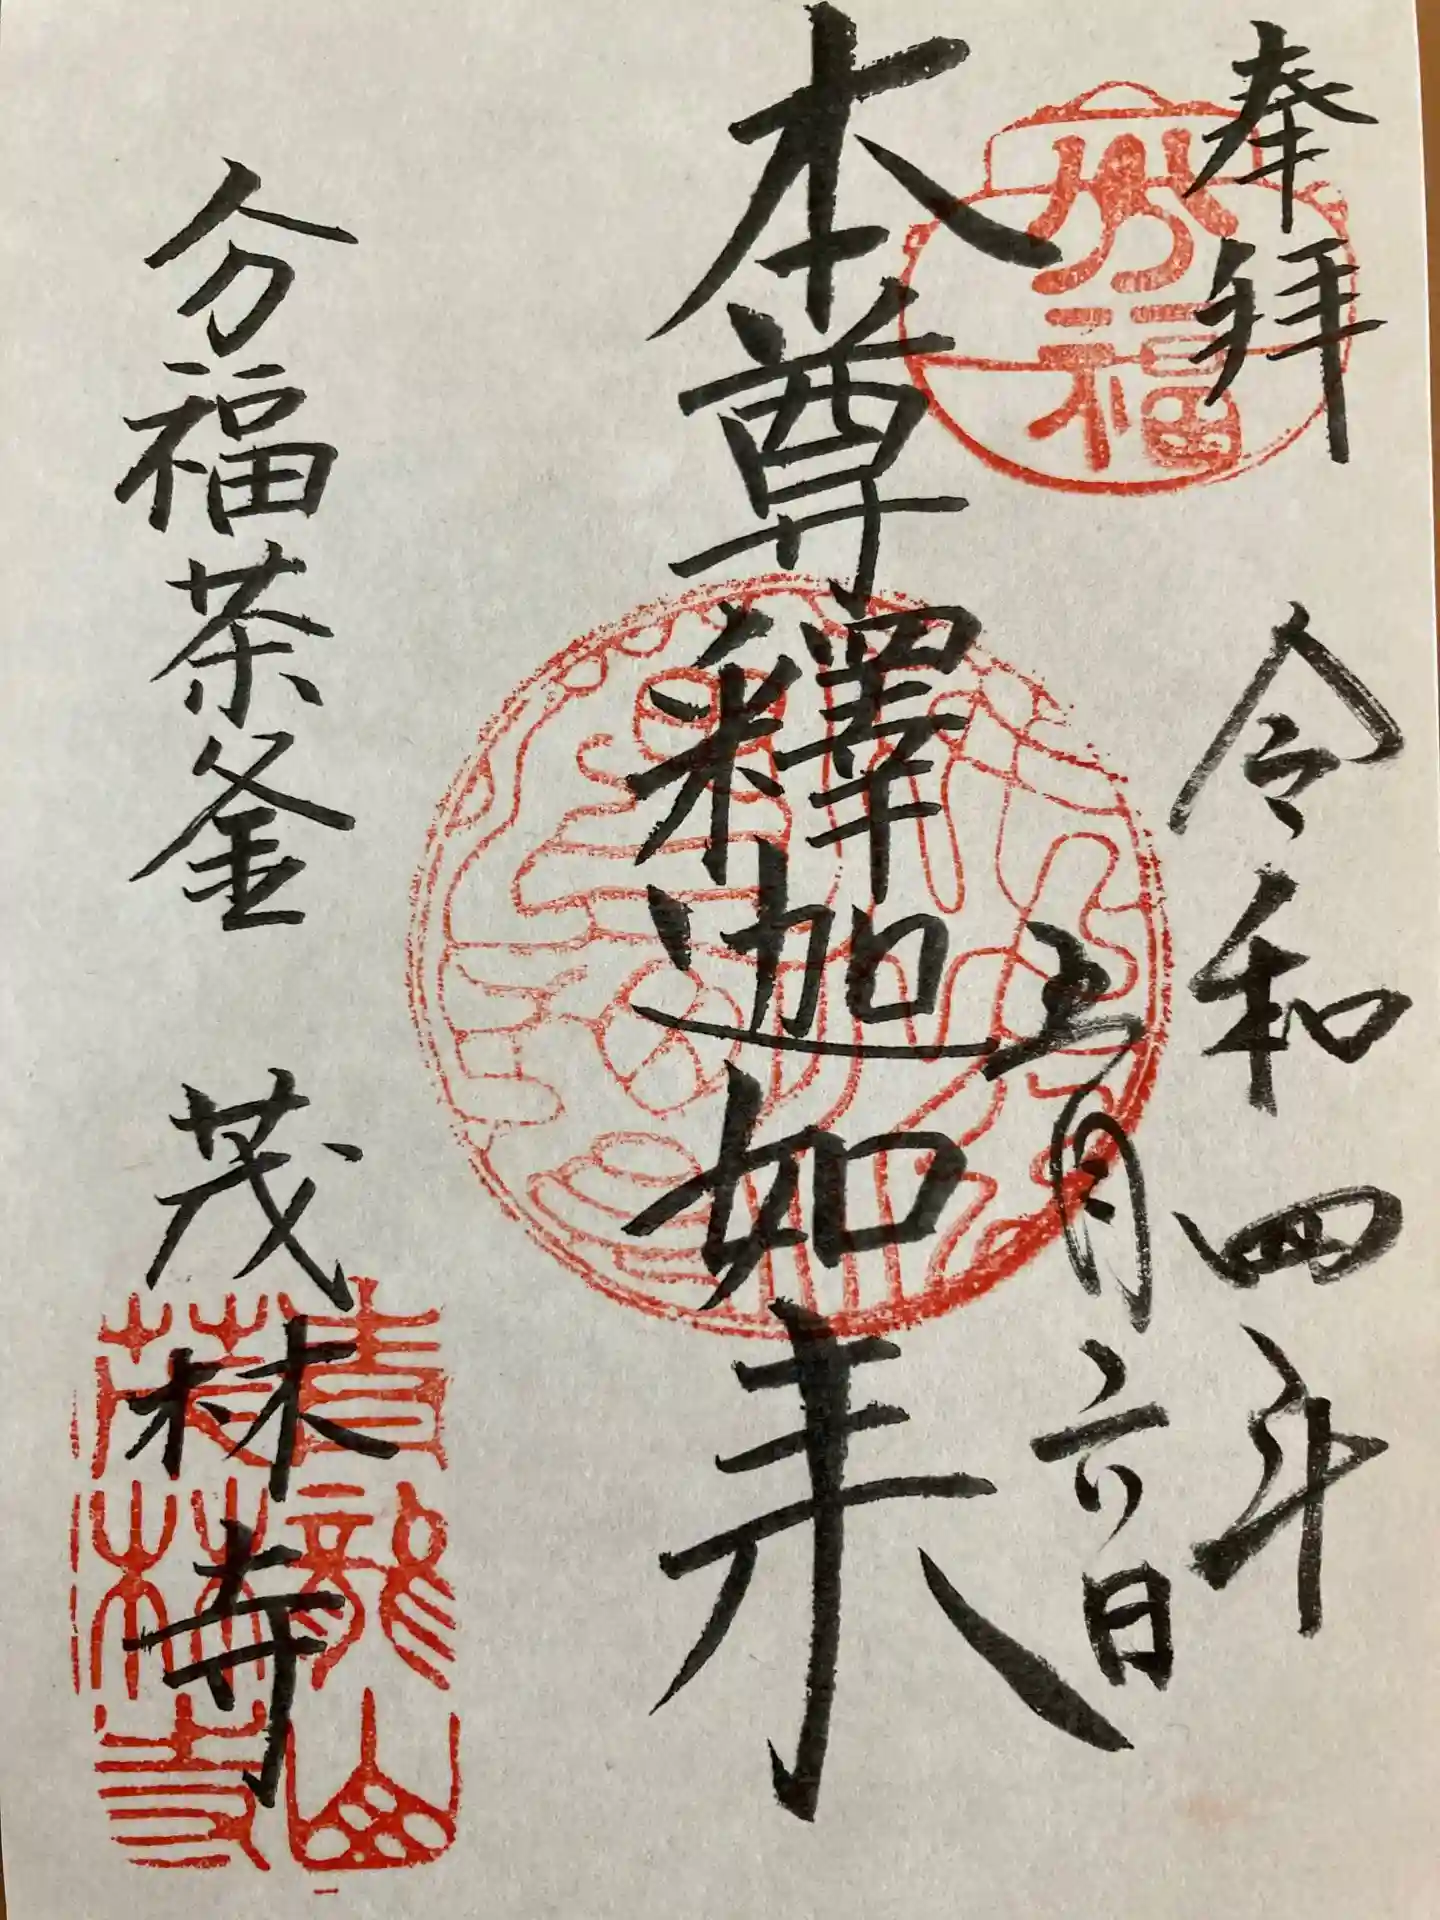 奉拝
令和四年
五月六日
分福
本尊釋迦如来
分福茶釜 茂林寺
青龍山
茂林寺